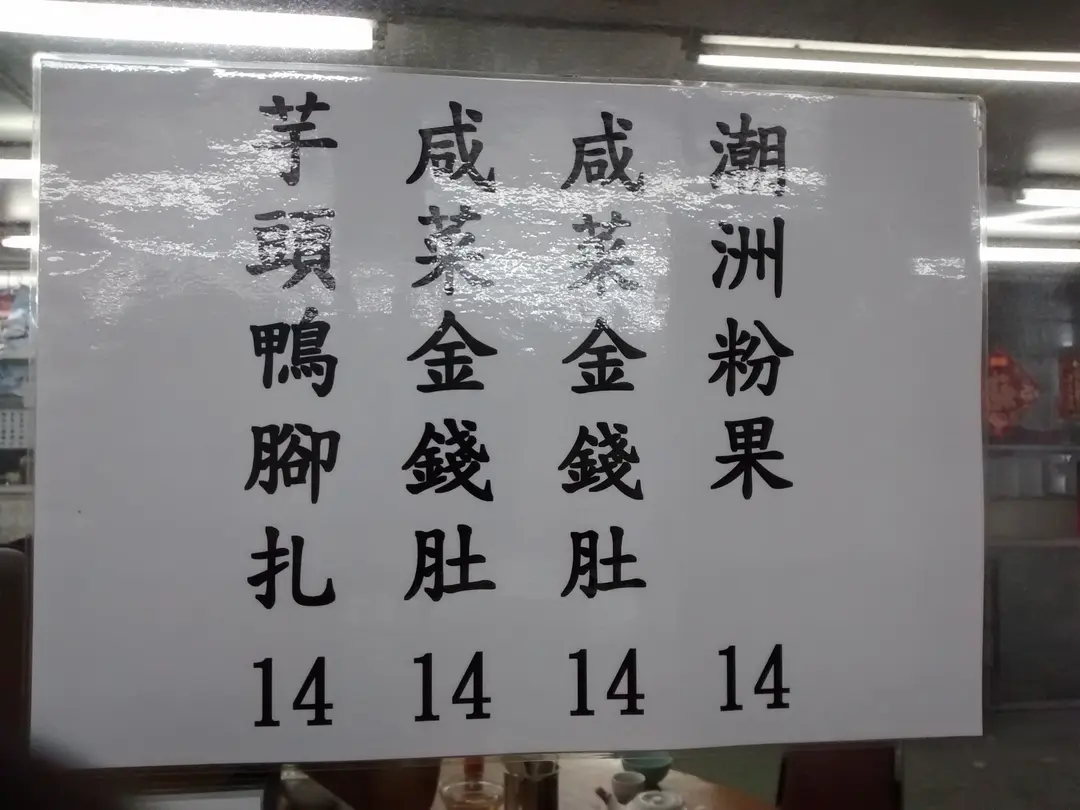 潮洲粉果 14
咸菜金錢肚 14
咸菜金錢肚 14
芋頭鴨腳扎 14